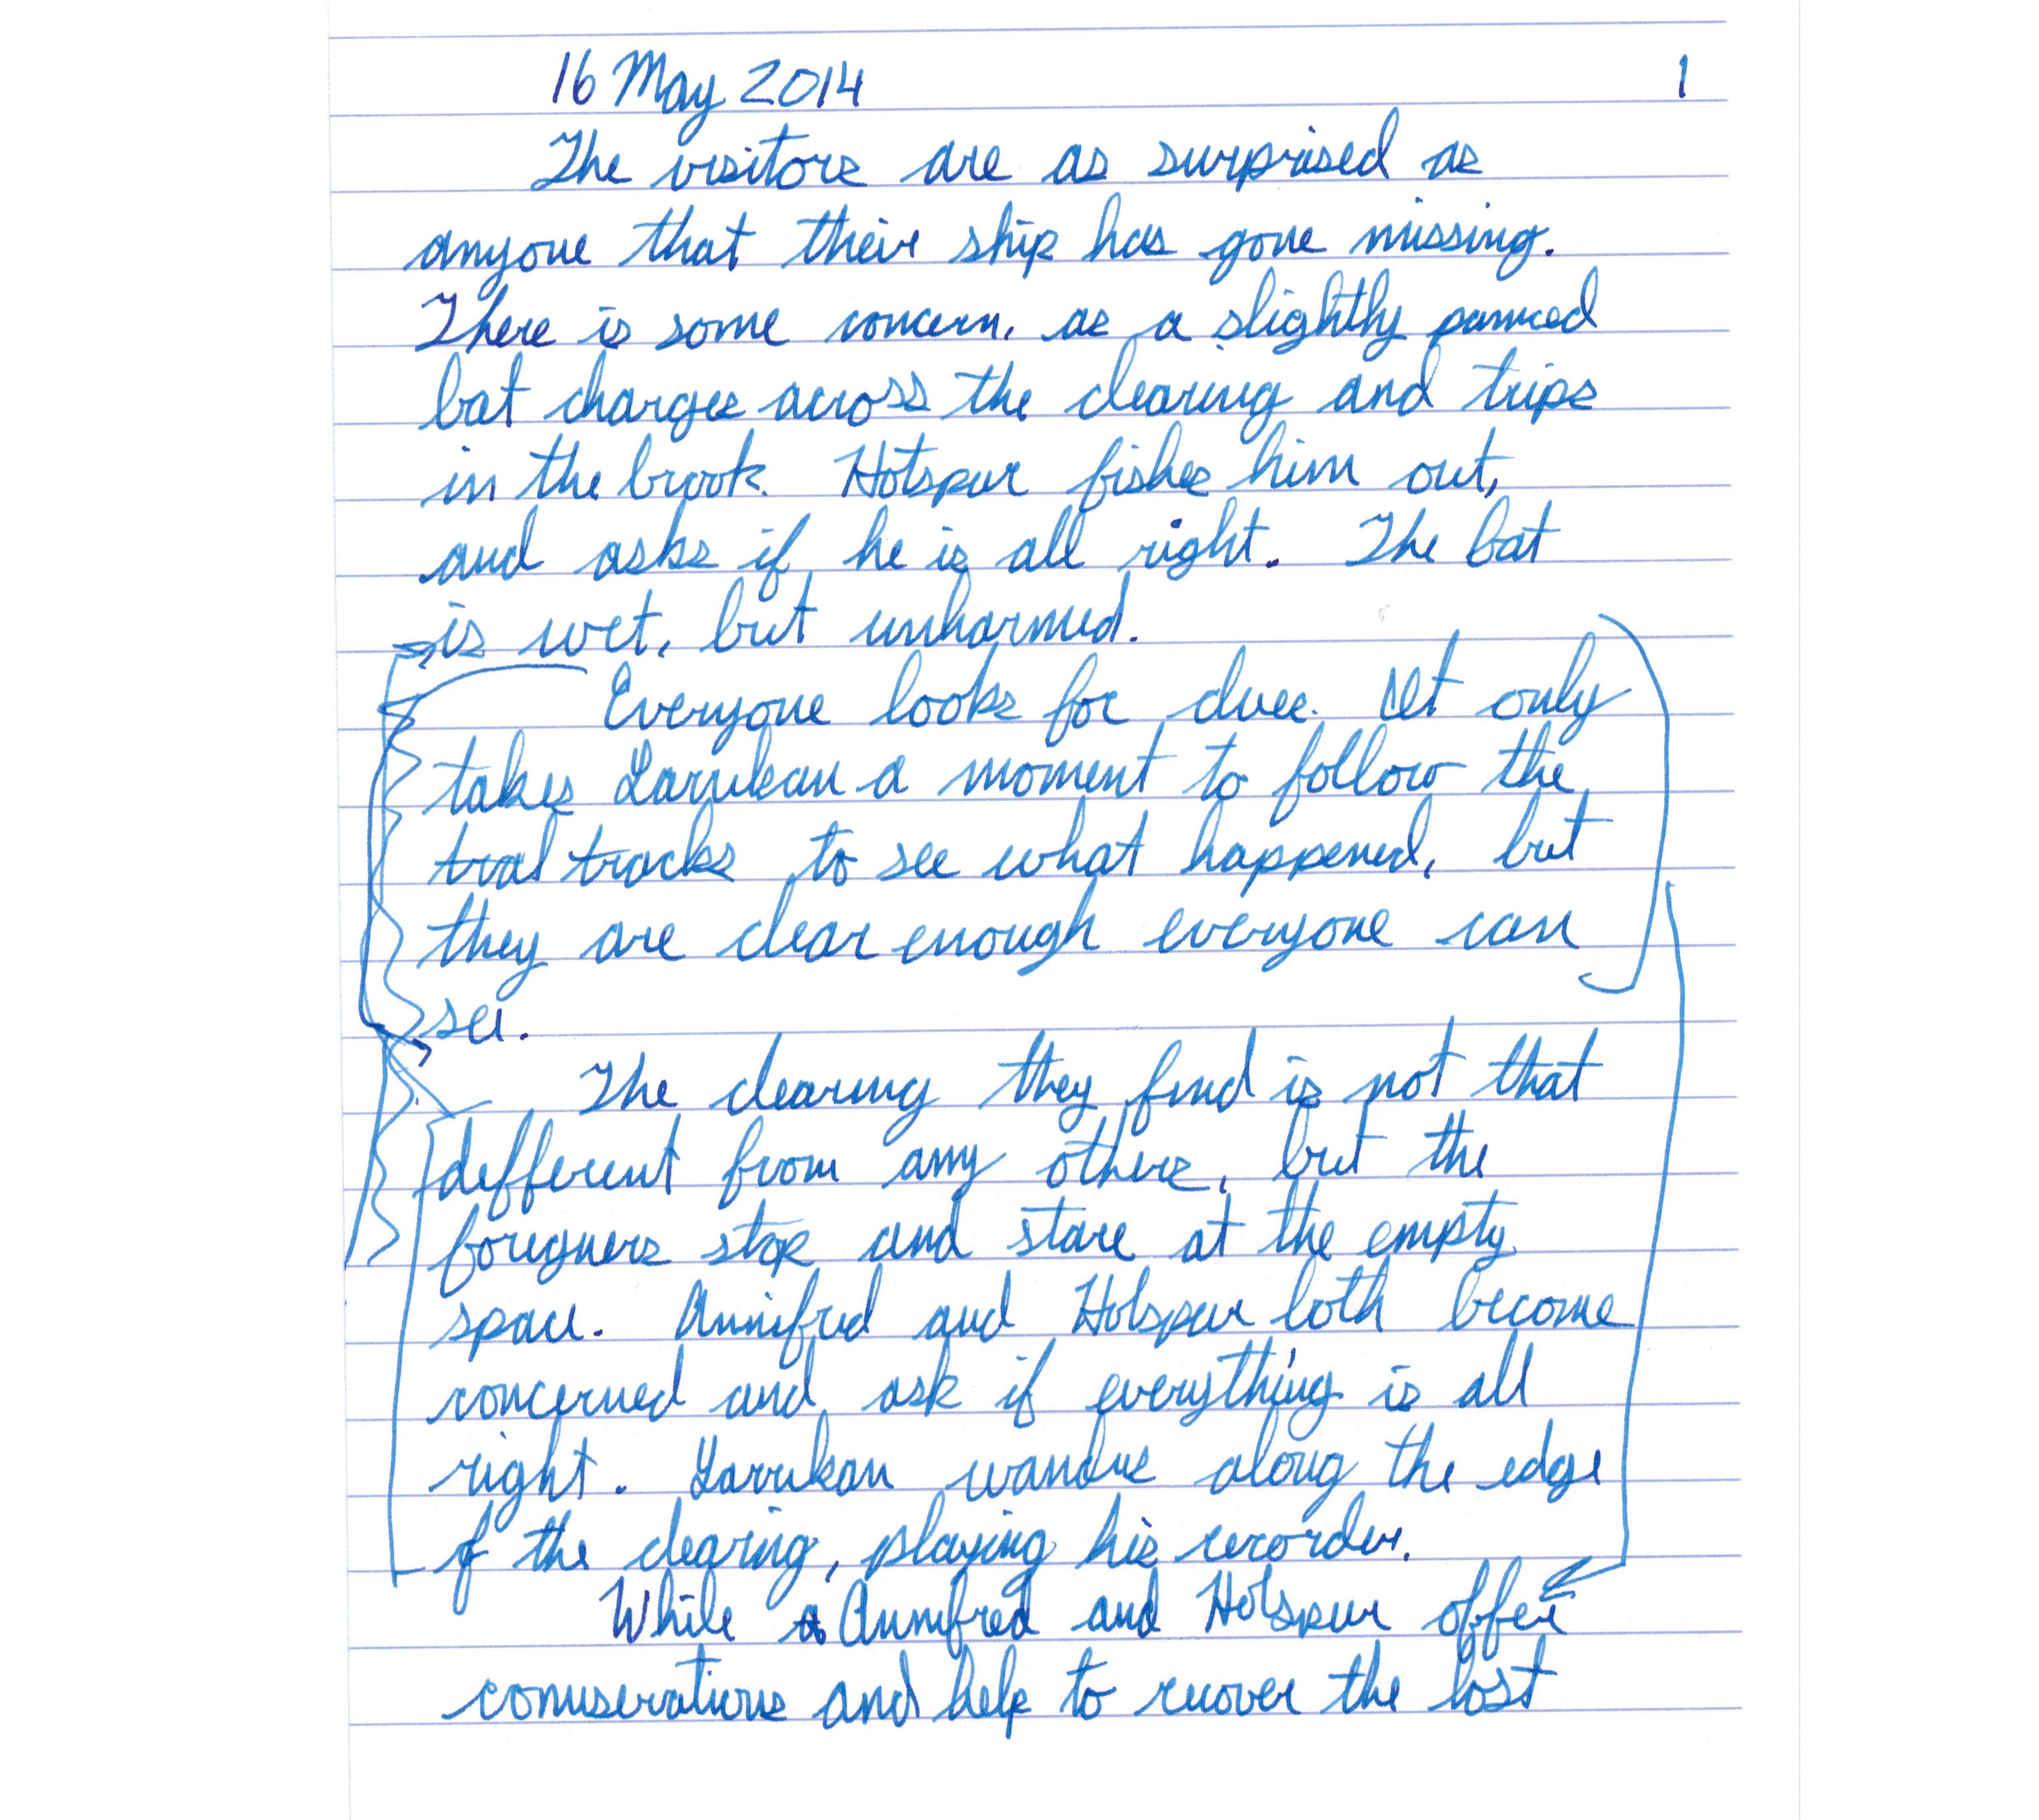 16 May 2014 1
The visitors are as surprised as
anyone that their ship has gone missing.
There is some concern, as a slightly panicked
bat charges across the clearing and trips
in the brook. Hotspur fishes him out,
and asks if he is all right. The bat
is wet, but unharmed.
Everyone looks for clues. It only
takes Larrikan a moment to follow the
trail tracks to see what happened, but
they are clear enough everyone can
see.
The clearing they find is not that
different from any others, but the
foreigners stop and stare at the empty
space. Annifred and Hotspur both become
concerned and ask if everything is all
right. Larrikan wanders along the edge
of the clearing, playing his recorder.
While a Annifred and Hotspur offer
comiserations and help to recover the lost